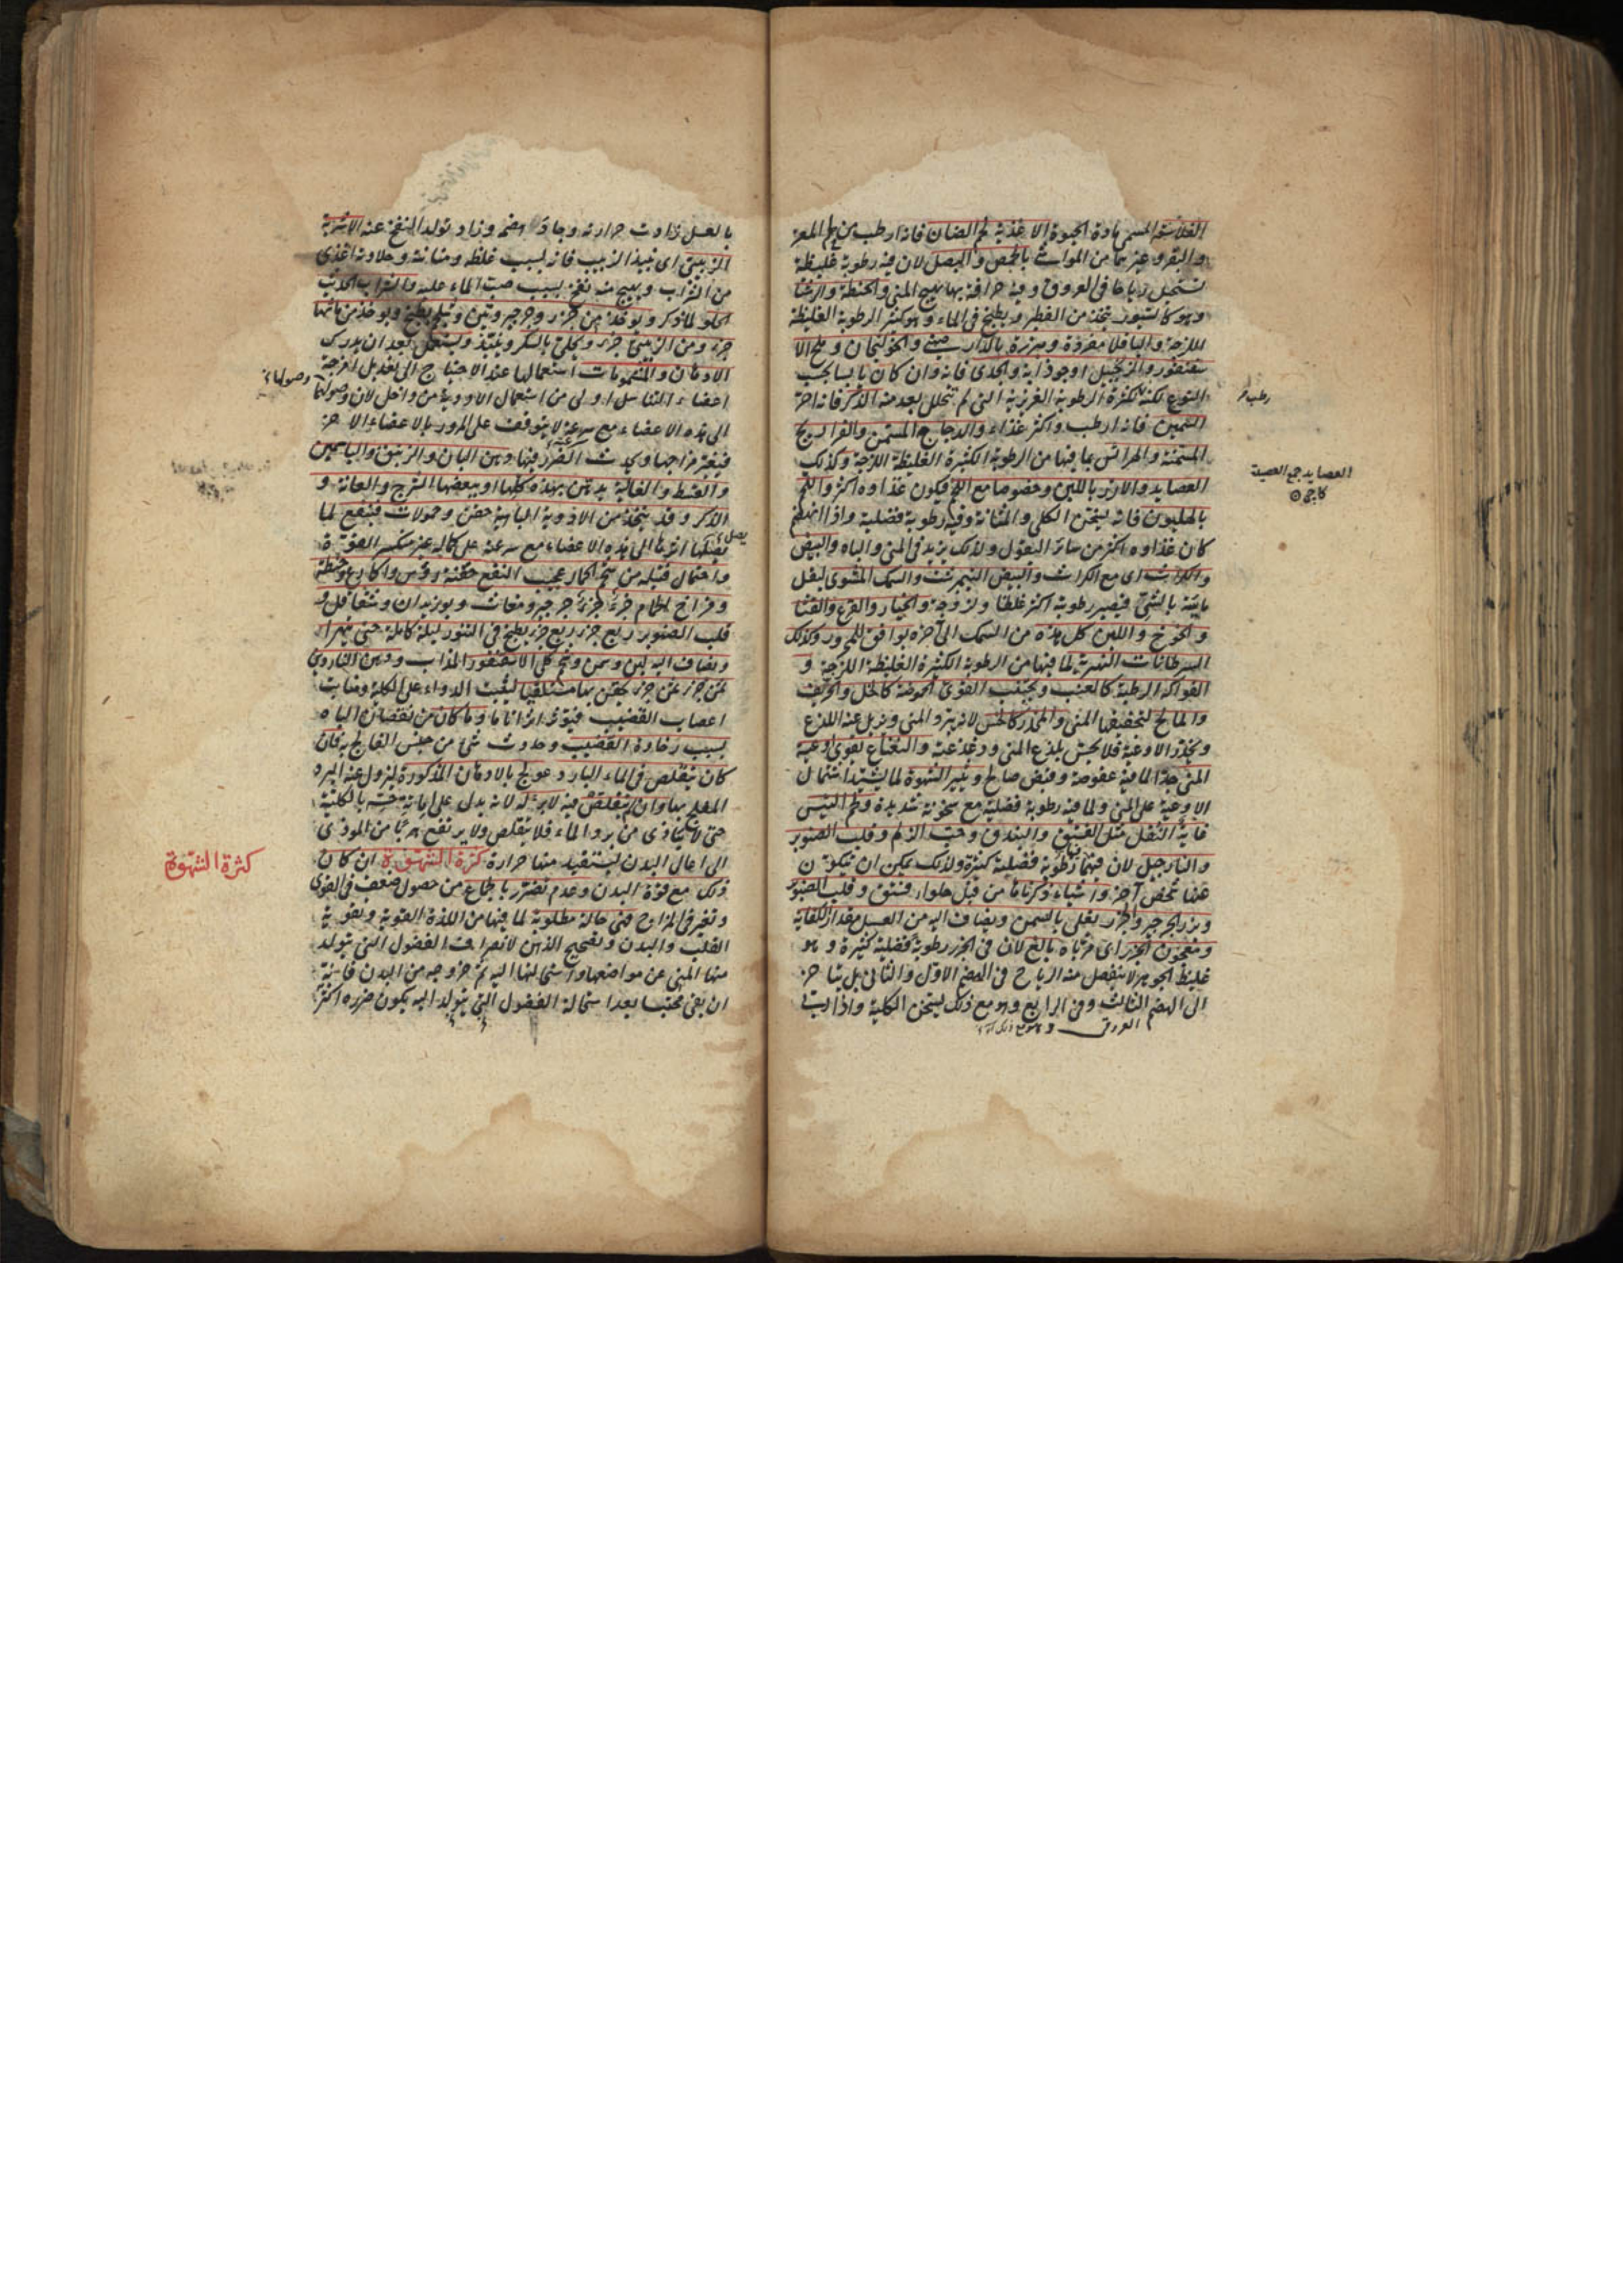 الفلاسفة المسمى بمادة الحيوة الاغذية لحم الضان فانه ارطب من لحم المعز
والبقر وغيرهما من المواشى بالحمص والبصل لان فيه رطوبة غليظة
تستحيل رياحا فى العروق وفيه حرافة بها يهيج المنى والحنطة والرشتا
وهو كالسيور يتخذ من الفطير ويطبخ فى الماء وهو كثير الرطوبة الغليظة
اللزجة والباقلا مفردة ومبزرة بالدارصينى والخولنجان وملح الا
سقنقور والزنجبيل او جوذابه والجدى فانه وان كان يابسا بحسب
النوع لكنه لكثرة الرطوبة الغريزية التى لم تتحلل بعد منه الذكر فانه احر
رطب
السمين فانه ارطب واكثر غذاء والدجاج المسمن والفراريج
المسمنة والهرائس بما فيها من الرطوبة الكثيرة الغليظة اللزجة وكذلك
العصايد والارز باللبن وخصوصا مع اللحم فيكون غذاوه اكثر واللحم
العصايد جمع العصيدة
بالهليون فانه يسخن الكلى والمثانة وفيه رطوبة فضلية واذا انهضم
كان غذاوه اكثر من سائر البقول ولذلك يزيد فى المنى والباه والبيض
والكراث اى مع الكراث والبيض النيمبرشت والسمك المشوى لبقل
مائيته بالشى فيصير رطوبة اكثر غلظا ولزوجة والخيار والقرع والقثا
والخوخ واللبن كل هذه من السمك الى آخره يوافق المحرور وكذلك
السرطانات النهرية لما فيها من الرطوبة الكثيرة الغليظة اللزجة و
الفواكه الرطبة كالعنب ويجتنب القوى الحموضة كالخل والحريف
والمالح لتجفيفها المنى والمخدر كالخس لانه يبرد المنى ويزيل عنه اللذع
ويخدر الاوعية فلا يحس بلذع المنى ودغدغته والنعناع يقوى اوعية
المنى جدا لما فيه عفوصة وقبض صالح ويثير الشهوة لما يشتد اشتمال
الاوعية على المنى ولما فيه رطوبة فضلية مع سخونة شديدة ولحم التيس
غاية النقل مثل الفستق والبندق وحب الزلم وقلب الصنوبر
والنارجيل لان فيهما رطوبة فضلية كثيرة ولذلك يمكن ان يتكون
عنها شخص آخر واشياء ذكرناها من قبل حلواء فستق وقلب الصنوبر
وبزر الجرجير والجزر يغلى بالسمن ويضاف اليه من العسل مقدار الكفاية
ومعجون الجزر اى مرباه بالغ لان فى الجزر رطوبة فضلية كثيرة وهو
غليظ الجوهر لا ينفصل منه الرياح فى الهضم الاول والثانى بل يتاخر
الى الهضم الثالث وفى الرابع وهو مع ذلك يسخن الكلية واذا ربى
العروق وهو مع ذلك
بالعسل زادت حرارته وجاد هضمه وزاد تولد النفخ عنه الاشربة
الزبيبى اى نبيذ الزبيب فانه بسبب غلظه ومتانته وحلاوته اغذى
من الشراب ويهيج منه نفخ بسبب صب الماء عليه والشراب الحديث
الحلو لما ذكر ويوخذ من جزر وجرجير وتين وشلجم يطبخ ويوخذ من مائها
جزء ومن الزبيبى جزء ويحلى بالسكر وينبذ ويستعمل بعد ان يدرك
الادهان والمشمومات استعمالها عند الاحتياج الى تعديل امزجة
اعضاء التناسل اولى من استعمال الادوية من داخل لان وصولها
وصولها
الى هذه الاعضاء مع سرعة لا يتوقف على المرور بالاعضاء الاخر
فيغير مزاجها ويحدث الضرر فيها دهن البان والزنبق والياسمين
والقسط والغالية يدهن بهذه كلها او ببعضها الشرج والعانة و
الذكر وقد يتخذ من الادوية الباهية حقن وحمولات فينفع لما
يصل اثرها الى هذه الاعضاء مع سرعته على كماله غير منكسر القوة
واحتمال فتيلة من شحم الحمار عجيب النفع حقنة رؤس واكارع وحنطة
وفراخ الحمام جزء جزء جرجير ومغاث وبوزيدان وشقاقل و
قلب الصنوبر ربع جزء ربع جزء يطبخ فى التنور ليلة كاملة حتى يتهرا
ويضاف اليه لبن وسمن وشحم كلى الاسقنقور المذاب ودهن الناردين
ثمن جزء ثمن جزء يحقن بها مستلقيا ليثبت الدواء على الكلية ومنابت
اعصاب القضيب فيؤثر اثرا تاما وما كان من نقصان الباه
بسبب رخاوة القضيب وحدوث شى من جنس الفالج به فان
كان يتقلص فى الماء البارد عولج بالادهان المذكورة ليزول عنه البرد
المفلج بها وان لم يتقلص فيه لا برء له لانه يدل على اماتة حسه بالكلية
حتى لا يتاذى من برد الماء فلا يتقلص ولا يرتفع هربا من الموذى
الى اعالى البدن ليستفيد منها حرارة كثرة الشهوة ان كان
كثرة الشهوة
ذلك مع قوة البدن وعدم تضرر بالجماع من حصول ضعف فى القوى
وتغير فى المزاج فهى حالة مطلوبة لما فيها من اللذة القوية وتقوية
القلب والبدن وتصحيح الذهن لانصراف الفضول التى يتولد
منها المنى عن مواضعها واستحالتها اليه ثم خروجه من البدن فانه
ان بقى محتبسا بعد استحالة الفضول التى يتولد اليه يكون ضرره اكثر